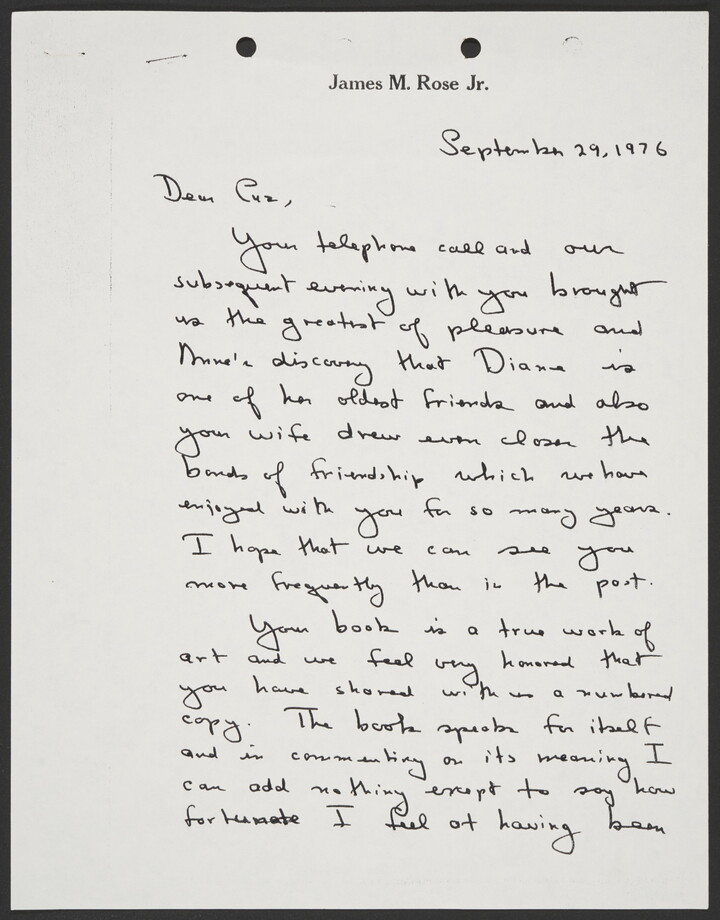 James M. Rose Jr.
September 29, 1976
Dear Cuz,
Your telephone call and our
subsequent evening with you brought
us the greatest of pleasure and
Anne's discovery that Diane is
one of her oldest friends and also
your wife drew even closer the
bonds of friendship which we have
enjoyed with you for so many years.
I hope that we can see you
more frequently than in the past.
Your book is a true work of
art and we feel very honored that
you have shared with us a numbered
copy. The book speaks for itself
and in commenting on its meaning I
can add nothing except to say how
fortunate I feel at having been